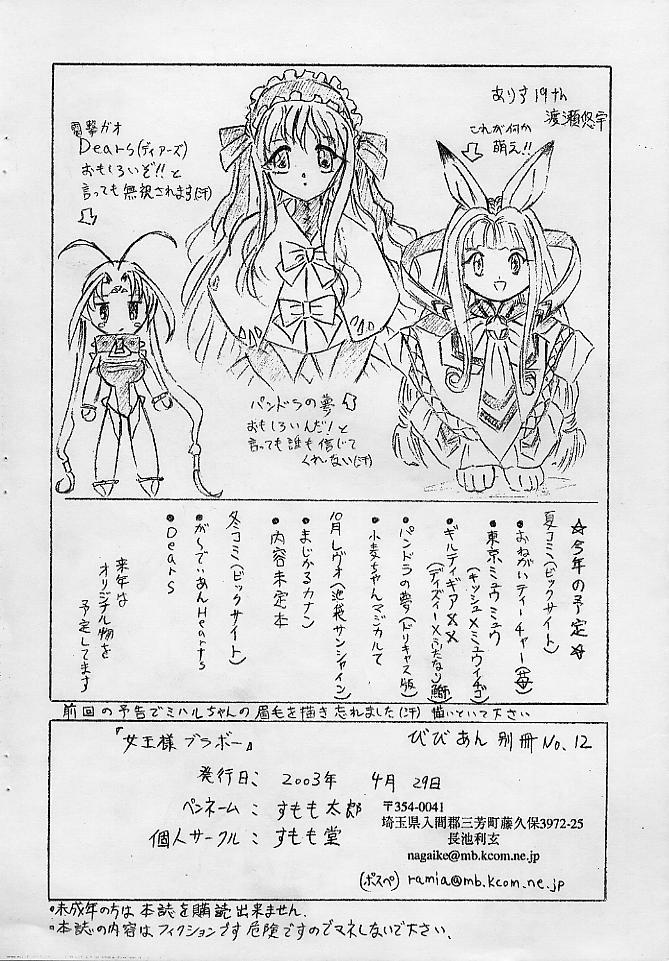 ありす19th
渡瀬悠宇
これが何か
萌え!!
電撃ガオ
Dears(ディアーズ)
おもしろいぞ!!と
言っても無視されます(汗)
パンドラの夢
おもしろいんだ!と
言っても誰も信じて
くれない(汗)
☆今年の予定☆
夏コミ(ビックサイト)
•おねがいティーチャー(苺)
•東京ミュウミュウ
(キッシュ×ミュウイチゴ)
•ギルティギア××
(ディズィー×ふたなり鰤)
•パンドラの夢(ドリキャス版)
•小麦ちゃんマジカルて
10月レヴォ(池袋サンシャイン)
•まじかるカナン
•内容未定本
冬コミ(ビックサイト)
•がぁーでぃあんHearts
•Dears
来年は
オリジナル物を
予定してます
前回の予告でミハルちゃんの眉毛を描き忘れました(汗) 描いといて下さい
『女王様ブラボー』 びびあん別冊No.12
発行日: 2003年 4月 29日
ペンネーム: すもも太郎
個人サークル: すもも堂
〒354-0041
埼玉県入間郡三芳町藤久保3972-25
長池利玄
nagaike@mb.kcom.ne.jp
(ポスペ) ramia@mb.kcom.ne.jp
•未成年の方は本誌を購読出来ません.
•本誌の内容はフィクションです危険ですのでマネしないで下さい.